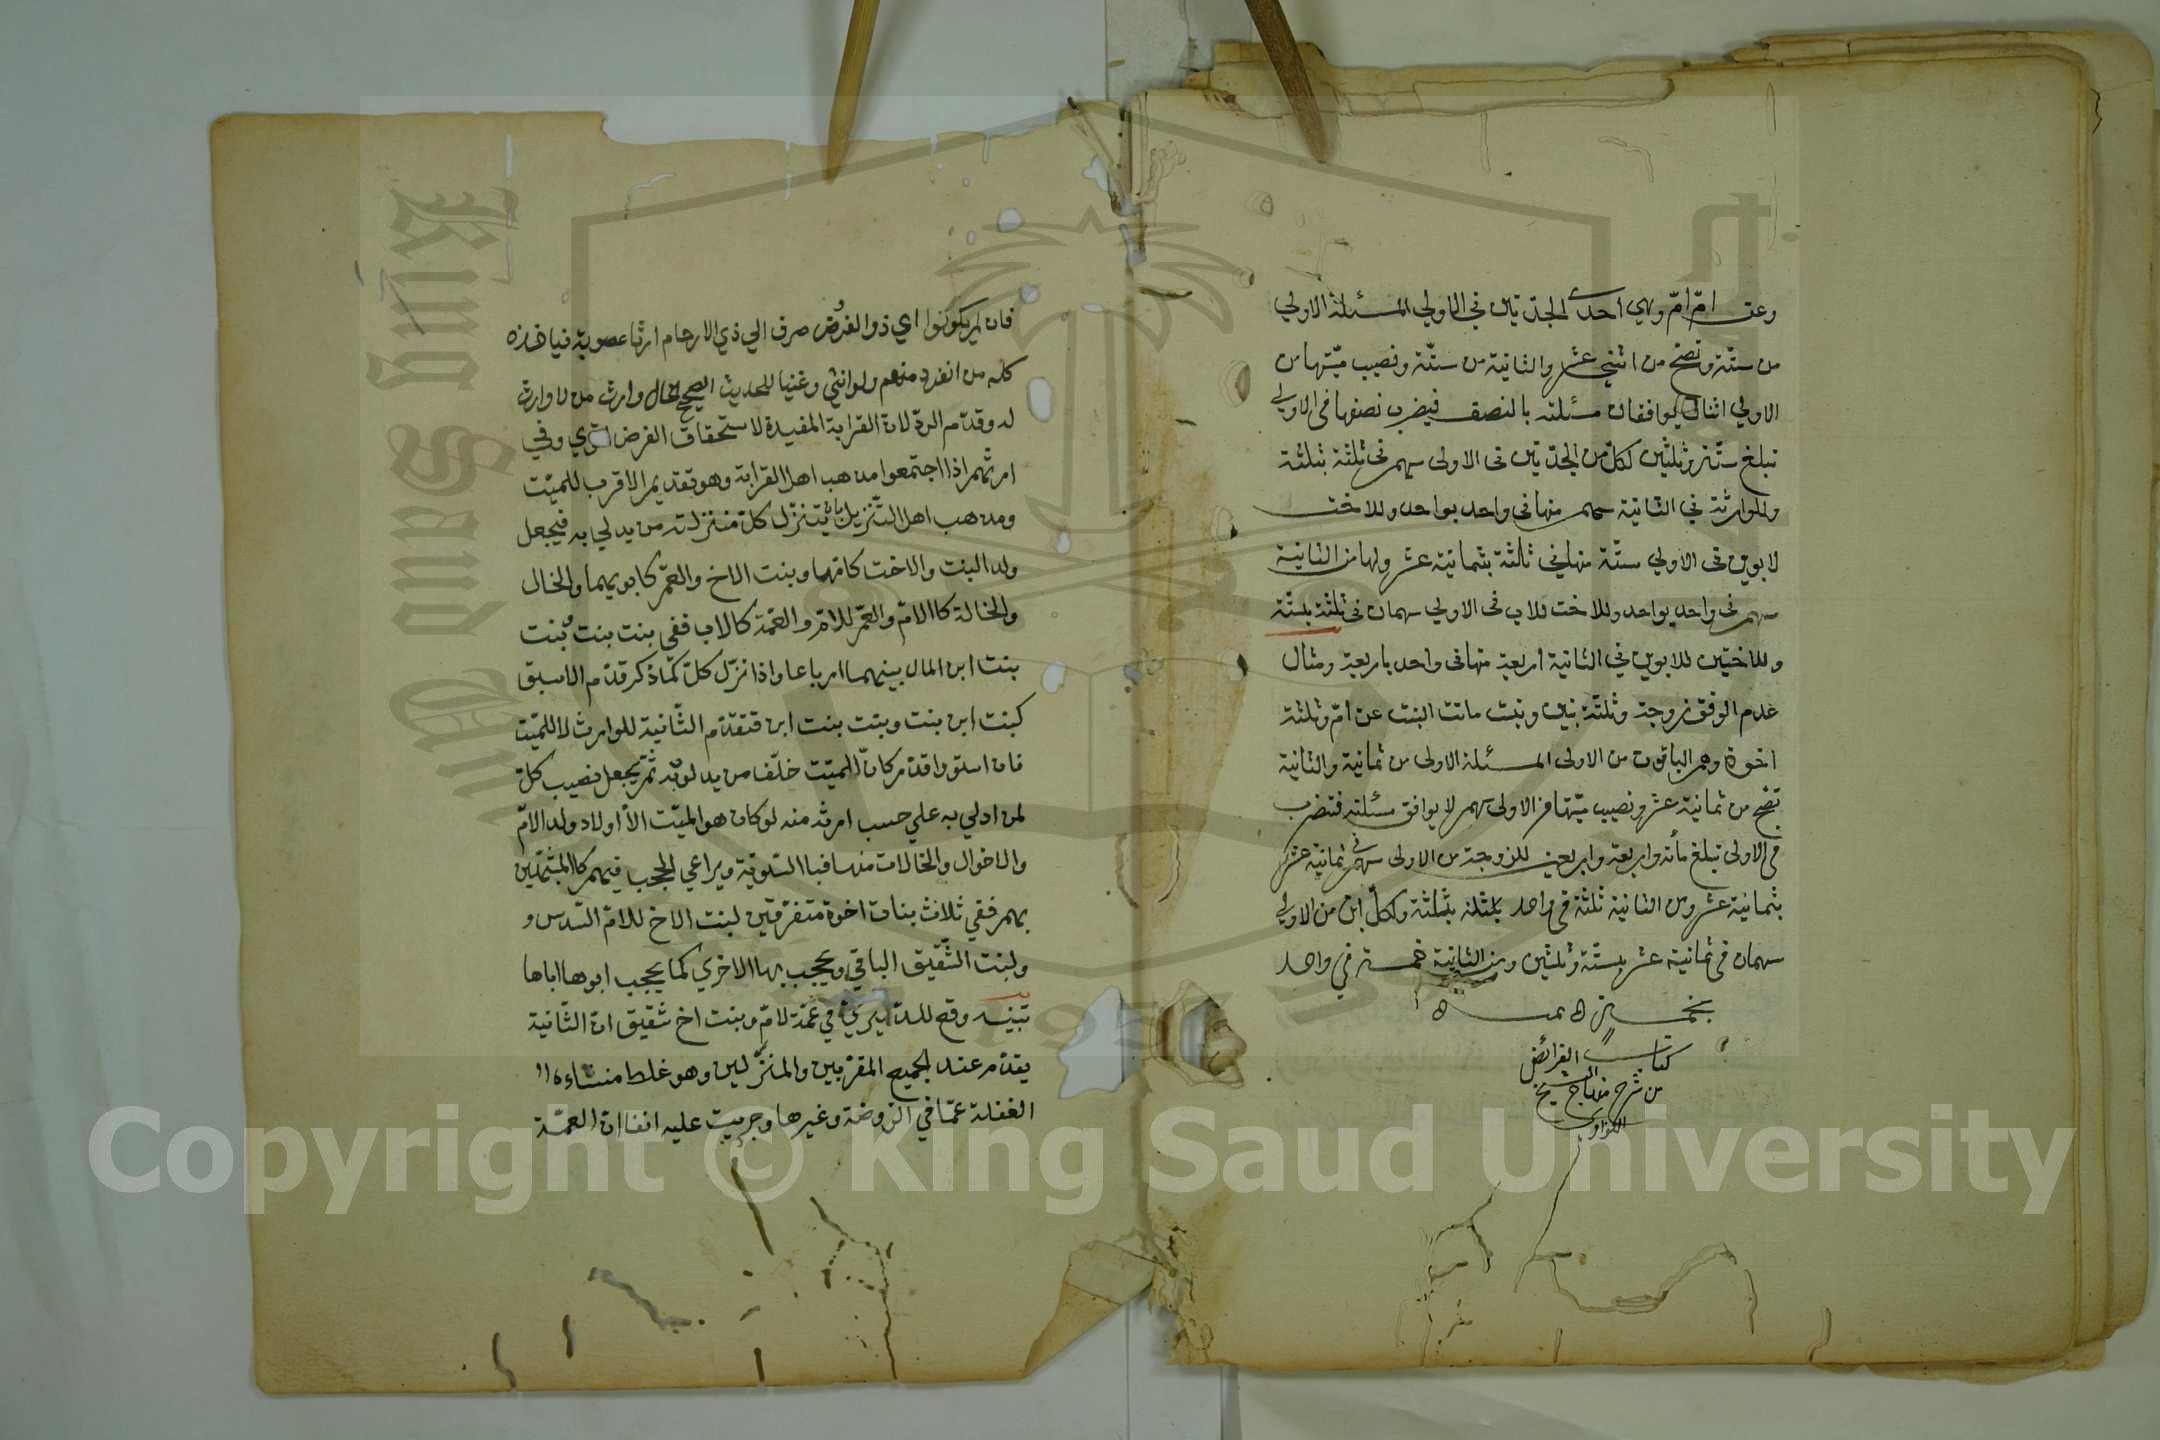 وعن ام ام وهي احدى الجدتين في الاولي المسئلة الاولي
من ستة وتصح من اثني عشر والثانية من ستة ونصيب ميتها من
الاولي اثنان يوافقان مسئلته بالنصف فيضرب نصفها في الاولي
تبلغ ستة وثلثين لكل من الجدتين في الاولى سهم في ثلثة بثلثة
وللوارثة في الثانية سهم منها في واحد بواحد وللاخت
لابوين في الاولي ستة منها في ثلثة بثمانية عشر ولها من الثانية
سهم في واحد بواحد وللاخت للاب في الاولي سهمان في ثلثة بستة
وللاختين للابوين في الثانية اربعة منها في واحد باربعة ومثال
عدم الوفق زوجة وثلثة بنين وبنت ماتت البنت عن ام وثلثة
اخوة وهم الباقون من الاولى المسئلة الاولى من ثمانية والثانية
تصح من ثمانية عشر ونصيب ميتها من الاولى سهم لا يوافق مسئلته فتضرب
في الاولى تبلغ مائة واربعة واربعين للزوجة من الاولى سهم في ثمانية عشر
بثمانية عشر ومن الثانية ثلثة في واحد بثلثة ولكل ابن من الاولي
سهمان في ثمانية عشر بستة وثلثين ومن الثانية خمسة في واحد
بخمسة تمت
كتاب الفرائض
من شرح منهاج الشيخ
النواوي
فان لم يكونوا اي ذوا الفرض صرف الي ذي الارحام ارثا عصوبة فياخذه
كله من انفرد منهم ولو انثي وغنيا للحديث الصحيح الخال وارث من لا وارث
له وقدم الرد لان القرابة المفيدة لاستحقاق الفرض اقوي وفي
ارثهم اذا اجتمعوا مذهب اهل القرابة وهو تقديم الاقرب للميت
ومذهب اهل التنزيل بان يتنزل كل منزلة من يدلي به فيجعل
ولد البنت والاخت كامهما وبنت الاخ والعم كابويهما والخال
والخالة كالام والعم للام والعمة كالاب ففي بنت بنت وبنت
بنت ابن المال بينهما ارباعا واذا نزل كل كما ذكر قدم الاسبق
كبنت ابن بنت وبنت بنت ابن فتقدم الثانية للوارث لا للميت
فان استووا قدر كان الميت خلف من يدلون به ثم يجعل نصيب كل
لمن ادلي به علي حسب ارثه منه لو كان هو الميت الا اولاد ولد الام
والاخوال والخالات منها فبالسوية ويراعي الحجب فيهم كالمشبهين
بهم ففي ثلاث بنات اخوة متفرقين لبنت الاخ للام السدس و
ولبنت الشقيق الباقي ويحجب بها الاخري كما يحجب ابوها اباها
تنبيه وقع للدميري في عمة لام وبنت اخ شقيق ان الثانية
يقدم عند الجميع المقربين والمنزلين وهو غلط منشاءه
الغفلة عما في الروضة وغيرها وجريت عليه انفا ان العمة
Copyright © King Saud University